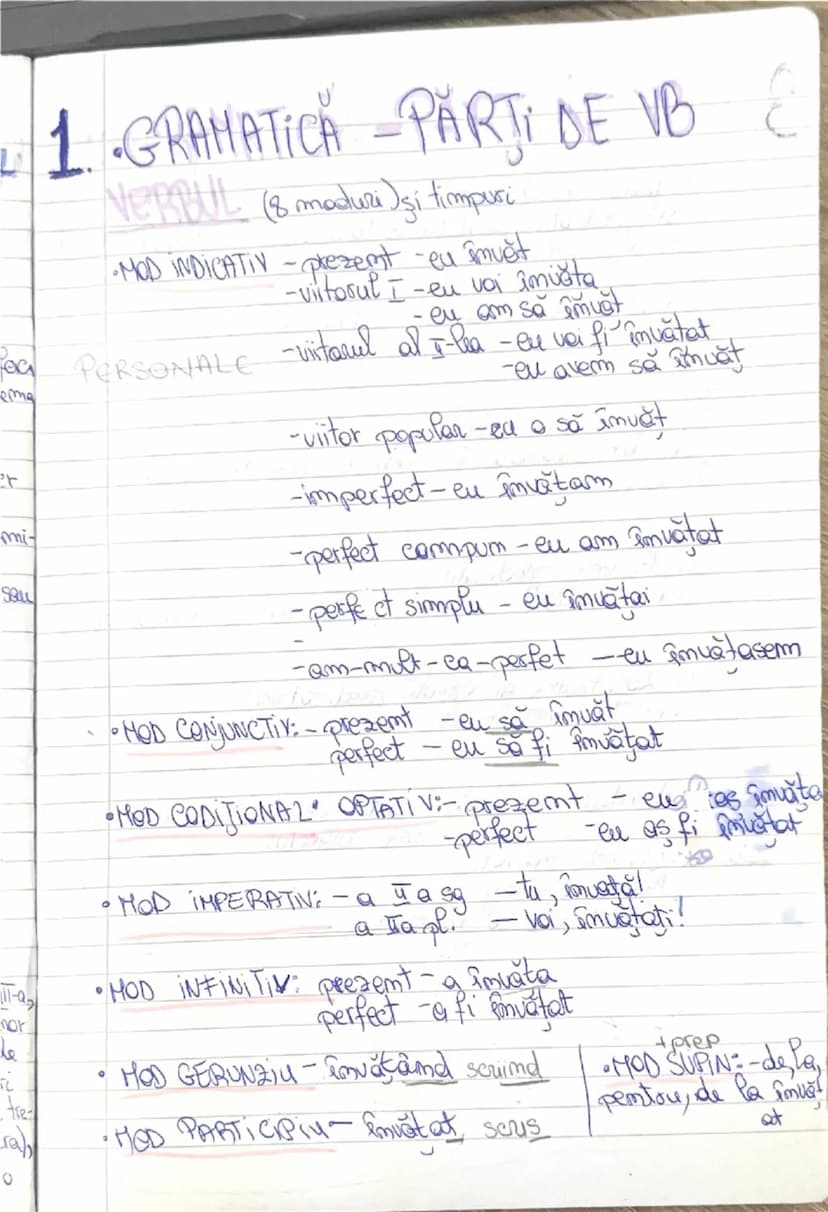 1. GRAMATICĂ - PĂRȚI DE VB
VERBUL (8 moduri) și timpuri
• MOD INDICATIV - prezent - eu învăț
- viitorul I - eu voi învăța
- eu am să învăț
- viitorul al II-lea - eu voi fi învățat
PERSONALE
- eu avem să învăț
- viitor popular - eu o să învăț
- imperfect - eu învățam
- perfect compum - eu am învățat
- perfect simplu - eu învățai
-
- am-mult-ca-perfet - eu învățasem
• MOD CONJUNCTIV: - prezent - eu să învăț
perfect - eu să fi învățat
• MOD CODIȚIONAL OPTATIV: - prezent - eu aș învăța
- perfect - eu aș fi învățat
• MOD IMPERATIV: - a II a sg - tu, învață!
a II a pl. - voi, învățați!
• MOD INFINITIV: prezent - a învăța
perfect - a fi învățat
• MOD GERUNZIU - învățând scriind
+ prep
• MOD SUPIN: - de, la,
pentru, de la învăț
at
• MOD PARTICIPIU - învățat, scris
foci
ema
mi-
sau
III-a,
nor
le
tre-
ra),
o